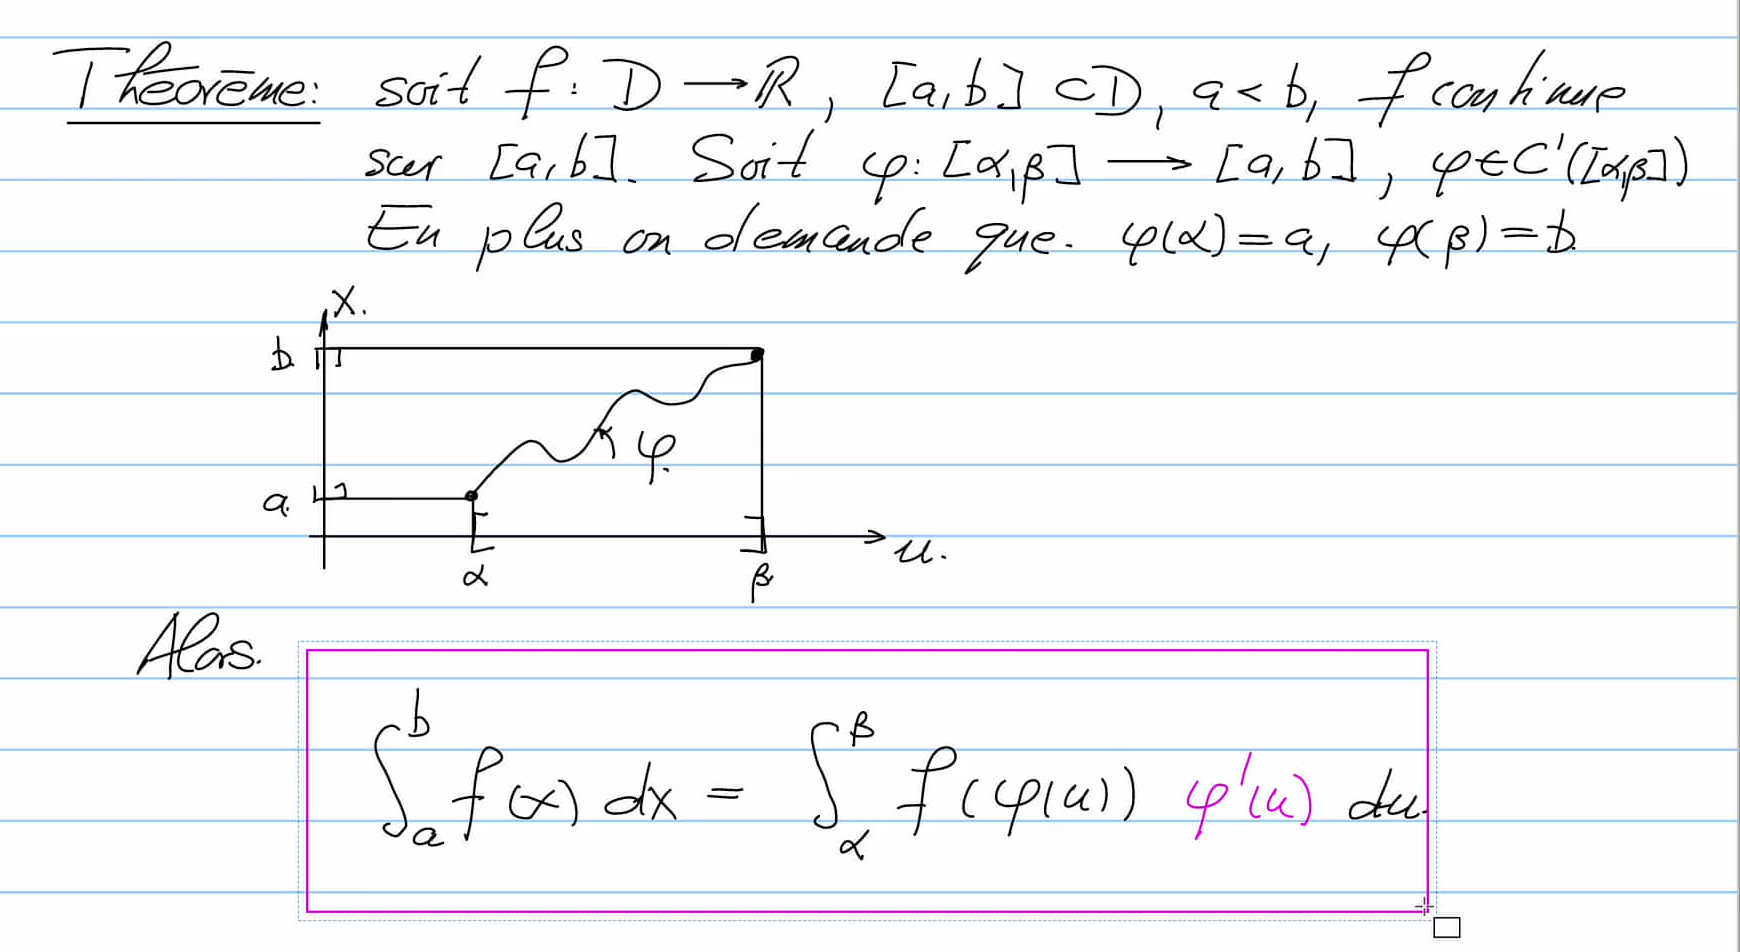 Théorème: soit f: D → ℝ, [a,b] ⊂ D, a < b, f continue
sur [a,b]. Soit φ: [α,β] → [a,b], φ ∈ C¹([α,β])
En plus on demande que. φ(α) = a, φ(β) = b.
x.
b
φ.
a.
u.
α β
Alors.
∫_a^b f(x) dx = ∫_α^β f(φ(u)) φ'(u) du.